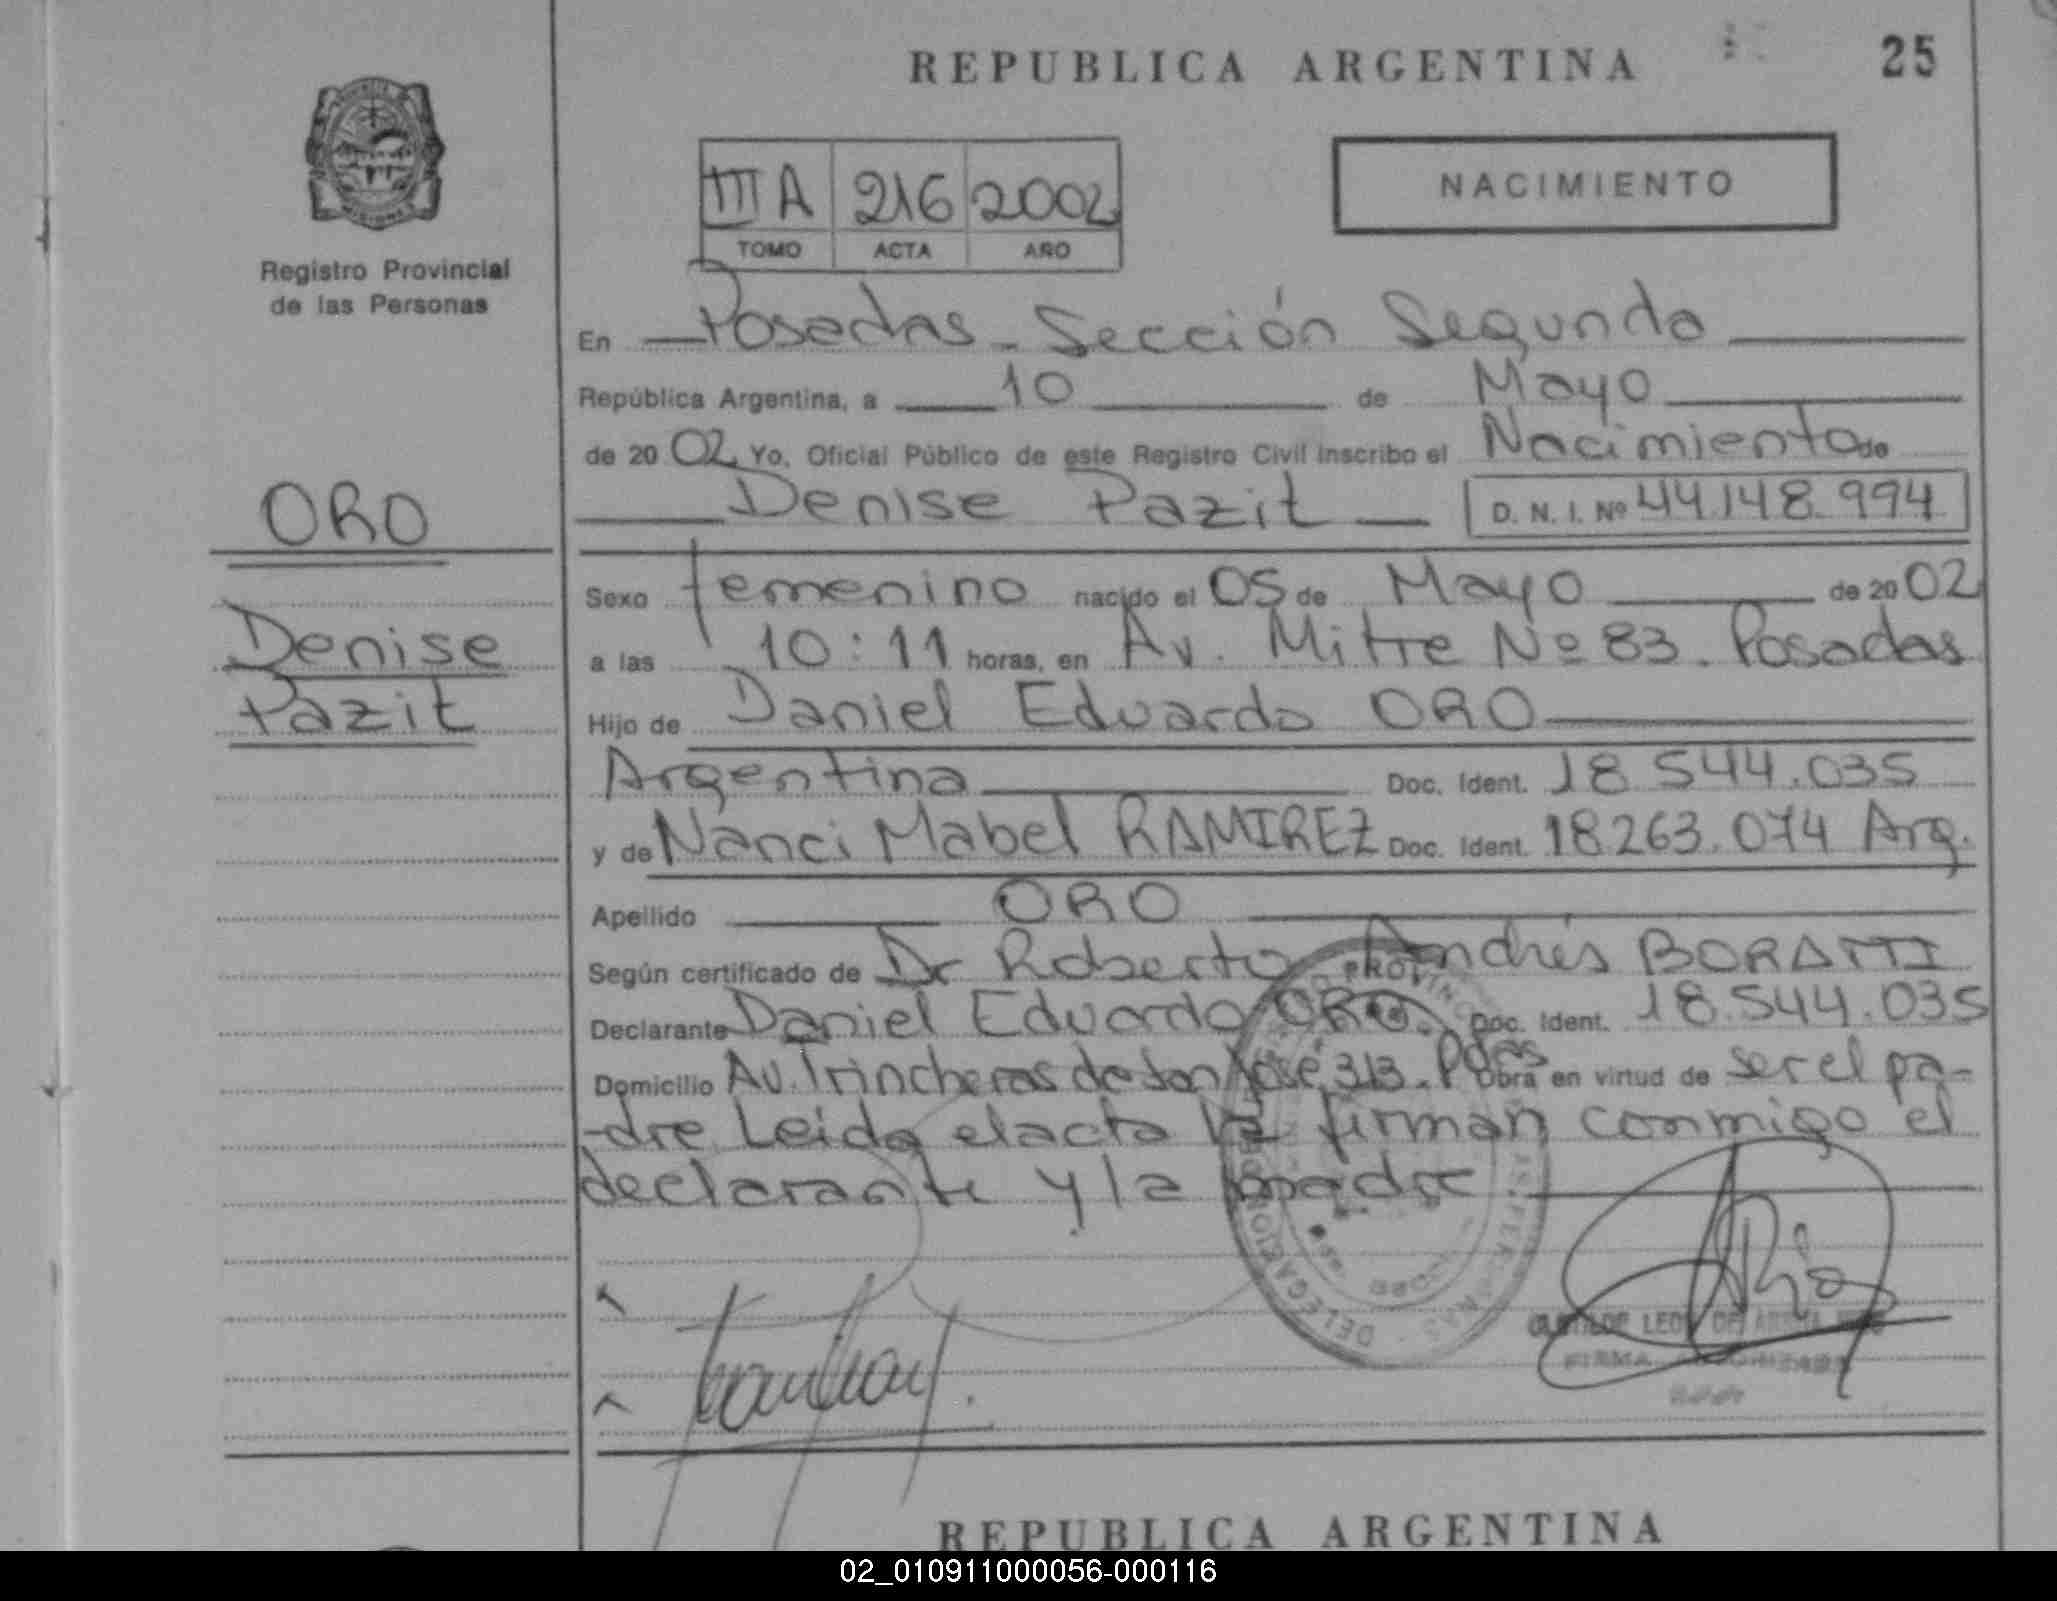 REPUBLICA ARGENTINA
25
Registro Provincial
de las Personas
III A 216 2002
TOMO ACTA AÑO
NACIMIENTO
En Posadas - Sección Segunda
República Argentina, a 10 de Mayo
de 2002 Yo, Oficial Público de este Registro Civil inscribo el Nacimiento de
Denise Pazit D. N. I. Nº 44.148.994
ORO
Denise
Pazit
Sexo femenino nacido el 05 de Mayo de 2002
a las 10:11 horas, en Av. Mitre Nº 83. Posadas
Hijo de Daniel Eduardo ORO
Argentina Doc. Ident. 18.544.035
y de Nanci Mabel RAMIREZ Doc. Ident. 18.263.074 Arg.
Apellido ORO
Según certificado de Dr Roberto Andrés BORATTI
Declarante Daniel Eduardo ORO. Doc. Ident. 18.544.035
Domicilio Av. Trincheras de San José 313. Pdas Obra en virtud de ser el pa-
-dre Leida el acta la firman conmigo el
declarante y la madre
REPUBLICA ARGENTINA
02_010911000056-000116